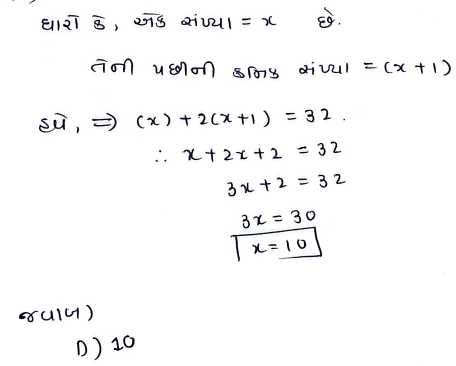 ધારો કે, એક સંખ્યા = x છે.
તેની પછીની ક્રમિક સંખ્યા = (x + 1)
હવે, ⇒ (x) + 2(x+1) = 32.
∴ x + 2x + 2 = 32
3x + 2 = 32
3x = 30
x = 10
જવાબ)
D) 10